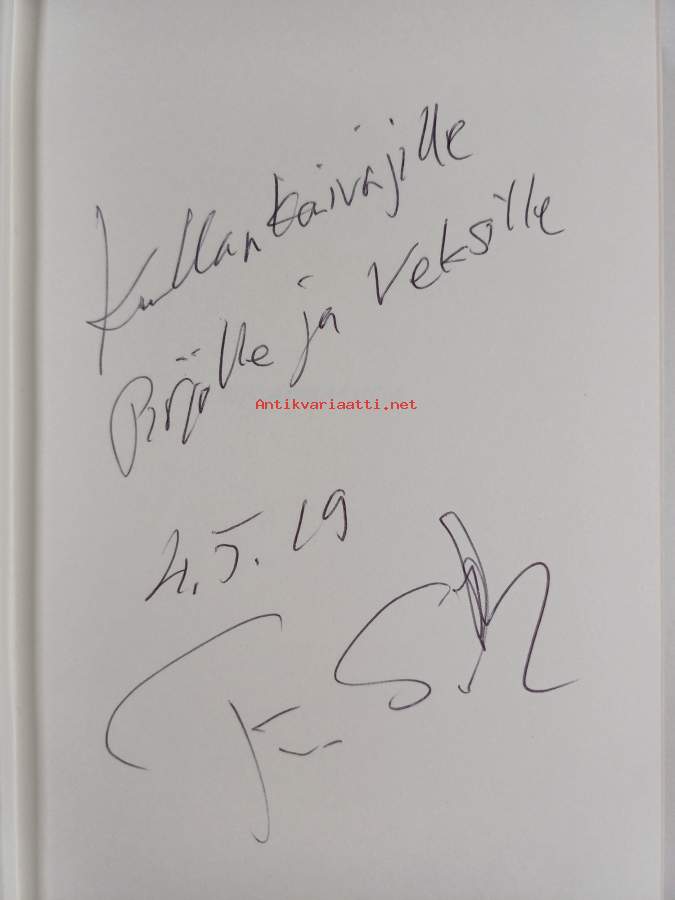 Kullankaivajille
Pirjolle ja Veksille
Antikvariaatti.net
4.5.19